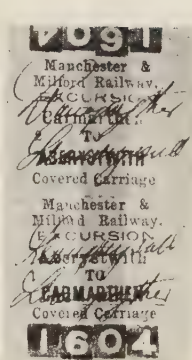 1604
Manchester &
Milford Railway.
EXCURSION
Carmarthen
TO
ABERYSTWITH
Covered Carriage
Manchester &
Milford Railway.
EXCURSION
Aberystwith
TO
CARMARTHEN
Covered Carriage
1604